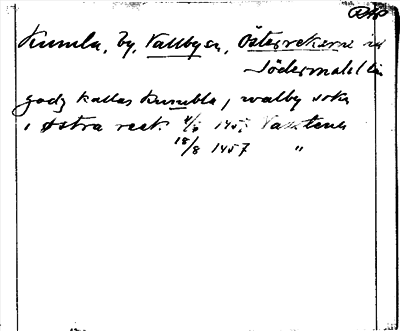 Kumla, by, Vallby sn, Österrekarne hd
Södermanl. län
godz kallas Kumbla, j walby sokn
i østra reek. 4/5 145. Vadstena
18/8 1457 "